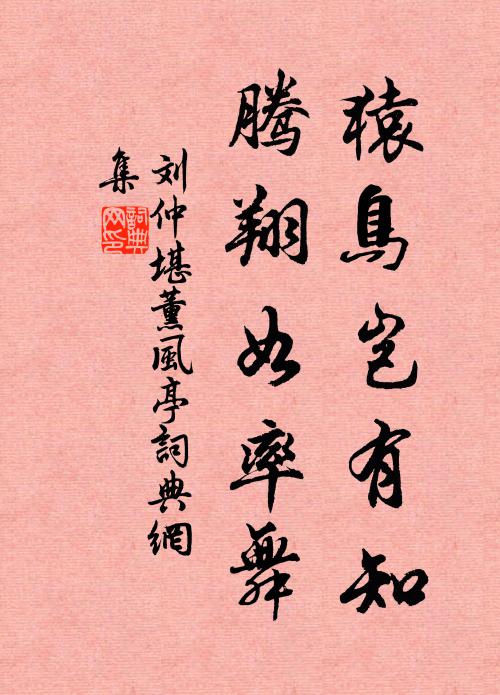 猿鳥豈有知
騰翔如率舞
刘仲堪薰風亭詞典網
集
詞典
网印